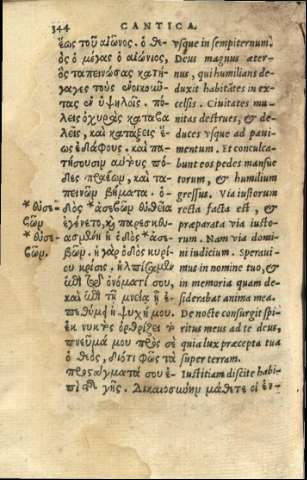 344 CANTICA.
ἕως τοῦ αἰῶνος. ὁ θε-
ὸς ὁ μέγας ὁ αἰώνιος,
ὃς ταπεινώσας κατή-
γαγες τοὺς ἐνοικοῦν-
τας ἐν ὑψηλοῖς. πό-
λεις ὀχυρὰς καταβα
λεῖς, καὶ κατάξεις ἕ-
ως ἐδάφους. καὶ πα-
τήσουσιν αὐτοὺς πό-
δες πραέων, καὶ τα-
πεινῶν βήματα. ὁ-
δὸς *ἀσεβῶν εὐθεῖα
ἐγένετο, κ παρεσκευ-
ασμένη ἡ ὁδὸς *ἀσε-
βῶν. ἡ γὰρ ὁδὸς κυρί-
ου κρίσις, ἠλπίσαμεν
ἐπὶ τῷ ὀνόματί σου,
καὶ ἐπὶ τῇ μνείᾳ ᾗ ἐ-
πεθύμει ἡ ψυχή μου.
ἐκ νυκτὸς ὀρθρίζει τὸ
πνεῦμά μου πρὸς σὲ
ὁ θεὸς, διότι φῶς τὰ
προςάγματά σου ἐ-
πὶ τῆς γῆς. Δικαιοσύνην μάθετε οἱ ἐν-
*εὐσε-
βῶν
*εὐσε-
βῶν.
vsque in sempiternum.
Deus magnus æter-
nus, qui humilians de-
duxit habitãtes in ex-
celsis. Ciuitates mu-
nitas destrues, & de-
duces vsque ad paui-
mentum. Et conculca-
bunt eos pedes mansue
torum, & humilium
gressus. Via iustorum
recta facta est, &
præparata via iusto-
rum. Nam via domi-
ni iudicium. Sperauí-
mus in nomine tuo, &
in memoria quam de-
siderabat anima mea.
De nocte consurgit spi-
ritus meus ad te deus,
quia lux præcepta tua
super terram.
Iustitiam discite habi-